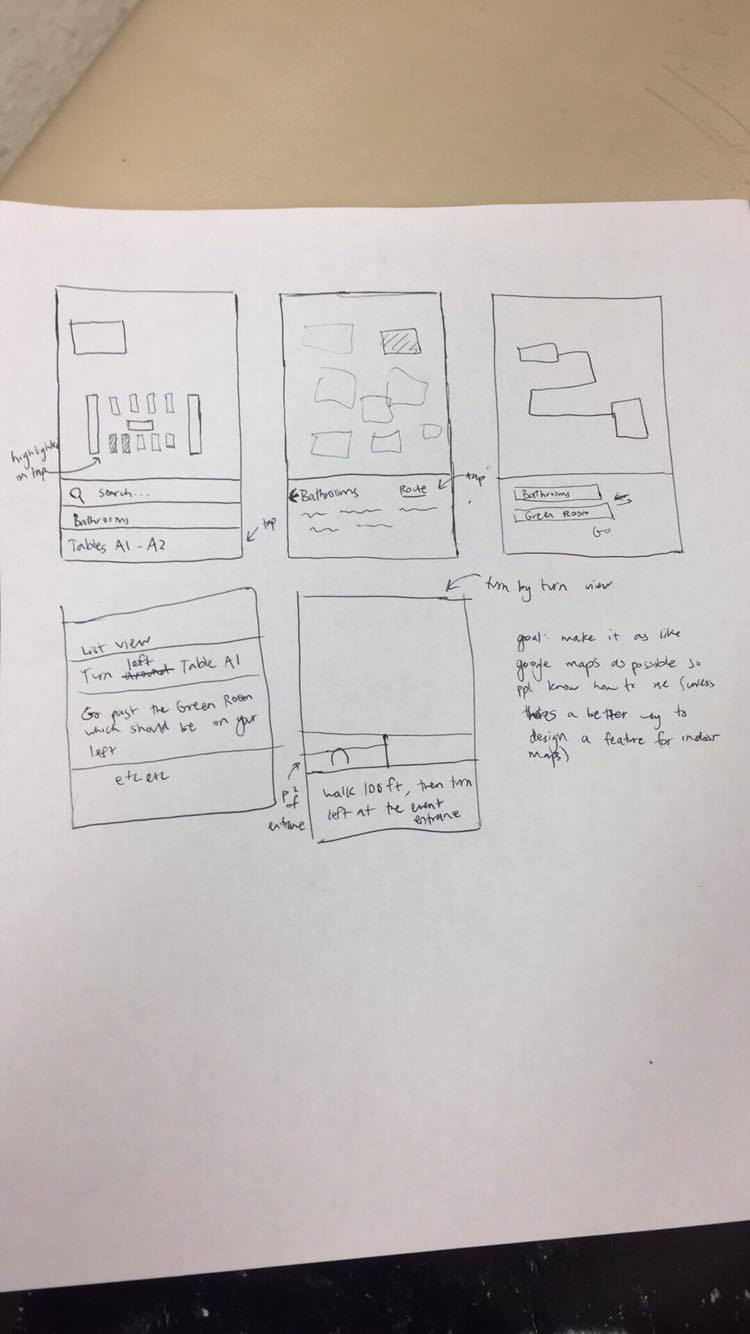 highlighted
on tap
search...
Bathrooms
Tables A1 - A2
tap
Bathrooms
Route
tap
Bathrooms
Green Room
Go
List view
left
Turn around Table A1
Go past the Green Room
which should be on your
left
etc etc
turn by turn view
of
entrance
walk 100ft, then turn
left at the event
entrance
goal: make it as like
google maps as possible so
ppl know how to use (unless
theres a better way to
design a feature for indoor
maps)